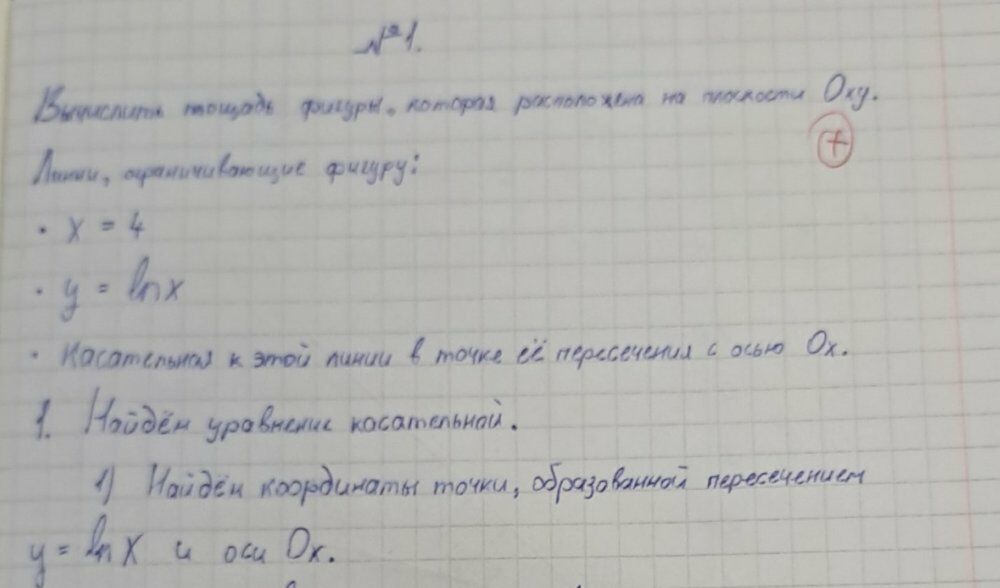 №1.
Вычислить площадь фигуры, которая расположена на плоскости Oxy.
+
Линии, ограничивающие фигуру:
• x = 4
• y = ln x
• Касательная к этой линии в точке её пересечения с осью Ox.
1. Найдём уравнение касательной.
1) Найдём координаты точки, образованной пересечением
y = ln x и оси Ox.